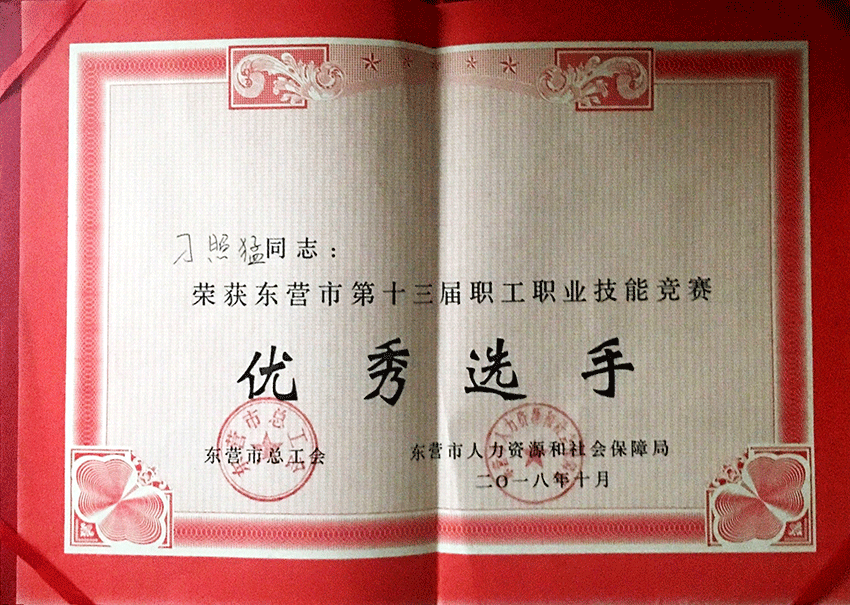 刁照猛同志：
荣获东营市第十三届职工职业技能竞赛
优秀选手
东营市总工会
东营市人力资源和社会保障局
二〇一八年十月
东营市总工会